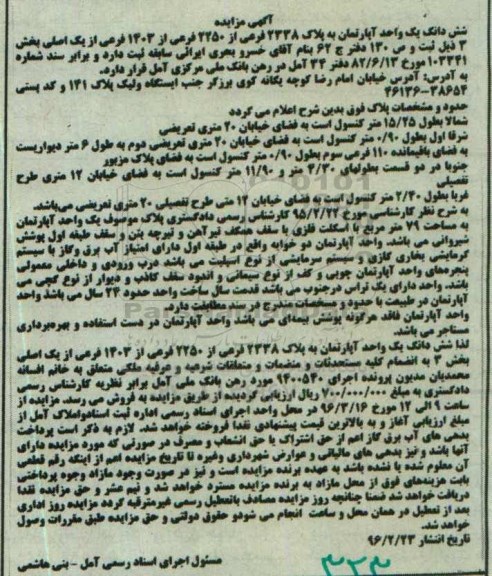 آگهی مزایده
شش دانگ یک واحد آپارتمان به پلاک ۲۳۳۸ فرعی از ۲۲۵۰ فرعی از ۱۴۰۳ فرعی از یک اصلی بخش
۳ ذیل ثبت و ص ۱۳۰ دفتر ج ۶۲ بنام آقای خسرو بحری ایرائی سابقه ثبت دارد و برابر سند شماره
۱۰۳۳۴۱ مورخ ۸۲/۶/۱۳ دفتر ۳۳ آمل در رهن بانک ملی مرکزی آمل قرار دارد.
به آدرس: آدرس خیابان امام رضا کوچه یگانه کوی برزگر جنب ایستگاه ولیک پلاک ۱۴۱ و کد پستی
۳۸۶۵۴-۴۶۱۳۶
حدود و مشخصات پلاک فوق بدین شرح اعلام می گردد
شمالا بطول ۱۵/۲۵ متر کنسول است به فضای خیابان ۲۰ متری تعریضی
شرقا اول بطول ۰/۹۰ متر کنسول است به فضای خیابان ۲۰ متری تعریضی دوم به طول ۶ متر دیواریست
به فضای باقیمانده ۱۱۰ فرعی سوم بطول ۰/۹۰ متر کنسول است به فضای پلاک مزبور
جنوبا در دو قسمت بطولهای ۴/۳۰ متر و ۱۱/۹۰ متر کنسول است به فضای خیابان ۱۲ متری طرح
تفصیلی
غربا بطول ۲/۴۰ متر کنسول است به فضای خیابان ۱۲ متی طرح تفصیلی ۲۰ متری تعریضی می‌باشد.
به شرح نظر کارشناسی مورخ ۹۵/۲/۲۲ کارشناس رسمی دادگستری پلاک موصوف یک واحد آپارتمان
به مساحت ۷۹ متر مربع با اسکلت فلزی با سقف همکف تیرآهن و تیرچه بتن و سقف طبقه اول پوشش
شیروانی می باشد. واحد آپارتمان دو خوابه واقع در طبقه اول دارای امتیاز آب برق وگاز با سیستم
گرمایشی بخاری گازی و سیستم سرمایشی از نوع اسپلیت می باشد درب ورودی و داخلی معمولی
پنجره‌های واحد آپارتمان چوبی و کف از نوع سیمانی و اندود سقف کاذب و دیوار از نوع گچی می
باشد. واحد دارای یک تراس درجنوب می باشد قدمت سال ساخت واحد حدود ۲۳ سال می باشد واحد
آپارتمان در طبیعت با حدود و مسخصات مندرج در سند مطابقت دارد.
واحد آپارتمان فاقد هرگونه پوشش بیمه‌ای می باشد واحد آپارتمان در دست استفاده و بهره‌برداری
مستاجر می باشد.
لذا شش دانگ یک واحد آپارتمان به پلاک ۲۳۳۸ فرعی از ۲۲۵۰ فرعی از ۱۴۰۳ فرعی از یک اصلی
بخش ۳ به انضمام کلیه مستحدثات و منضمات و متعلقات شرعیه و عرفیه ملکی متعلق به خانم افسانه
محمدیان مدیون پرونده اجرای ۹۴۰۰۵۴۰ مورد رهن بانک ملی آمل برابر نظریه کارشناس رسمی
دادگستری به مبلغ ۷۰۰/۰۰۰/۰۰۰ ریال ارزیابی گردیده از طریق مزایده به فروش می رسد. مزایده از
ساعت ۹ الی ۱۲ مورخ ۹۶/۳/۱۶ در محل واحد اجرای اسناد رسمی اداره ثبت اسنادواملاک آمل از
مبلغ ارزیابی آغاز و به بالاترین قیمت پیشنهادی نقدا فروخته خواهد شد. لازم به ذکر است پرداخت
بدهی های آب برق گاز اعم از حق اشتراک یا حق انشعاب و مصرف در صورتی که مورد مزایده دارای
آنها باشد و نیز بدهی های مالیاتی و عوارض شهرداری وغیره تا تاریخ مزایده اعم از اینکه رقم قطعی
آن معلوم شده یا نشده باشد به عهده برنده مزایده است و نیز در صورت وجود مازاد وجوه پرداختی
بابت هزینه‌های فوق از محل مازاد به برنده مزایده مسترد خواهد شد و نیم عشر و حق مزایده نقدا
دریافت خواهد شد ضمنا چنانچه روز مزایده مصادف باتعطیل رسمی غیرمترقبه گردد مزایده روز اداری
بعد از تعطیل در همان محل و ساعت انجام می شودو حقوق دولتی و حق مزایده طبق مقررات وصول
خواهد شد.
تاریخ انتشار ۹۶/۲/۲۳
مسئول اجرای اسناد رسمی آمل - بنی هاشمی
۳۲۳